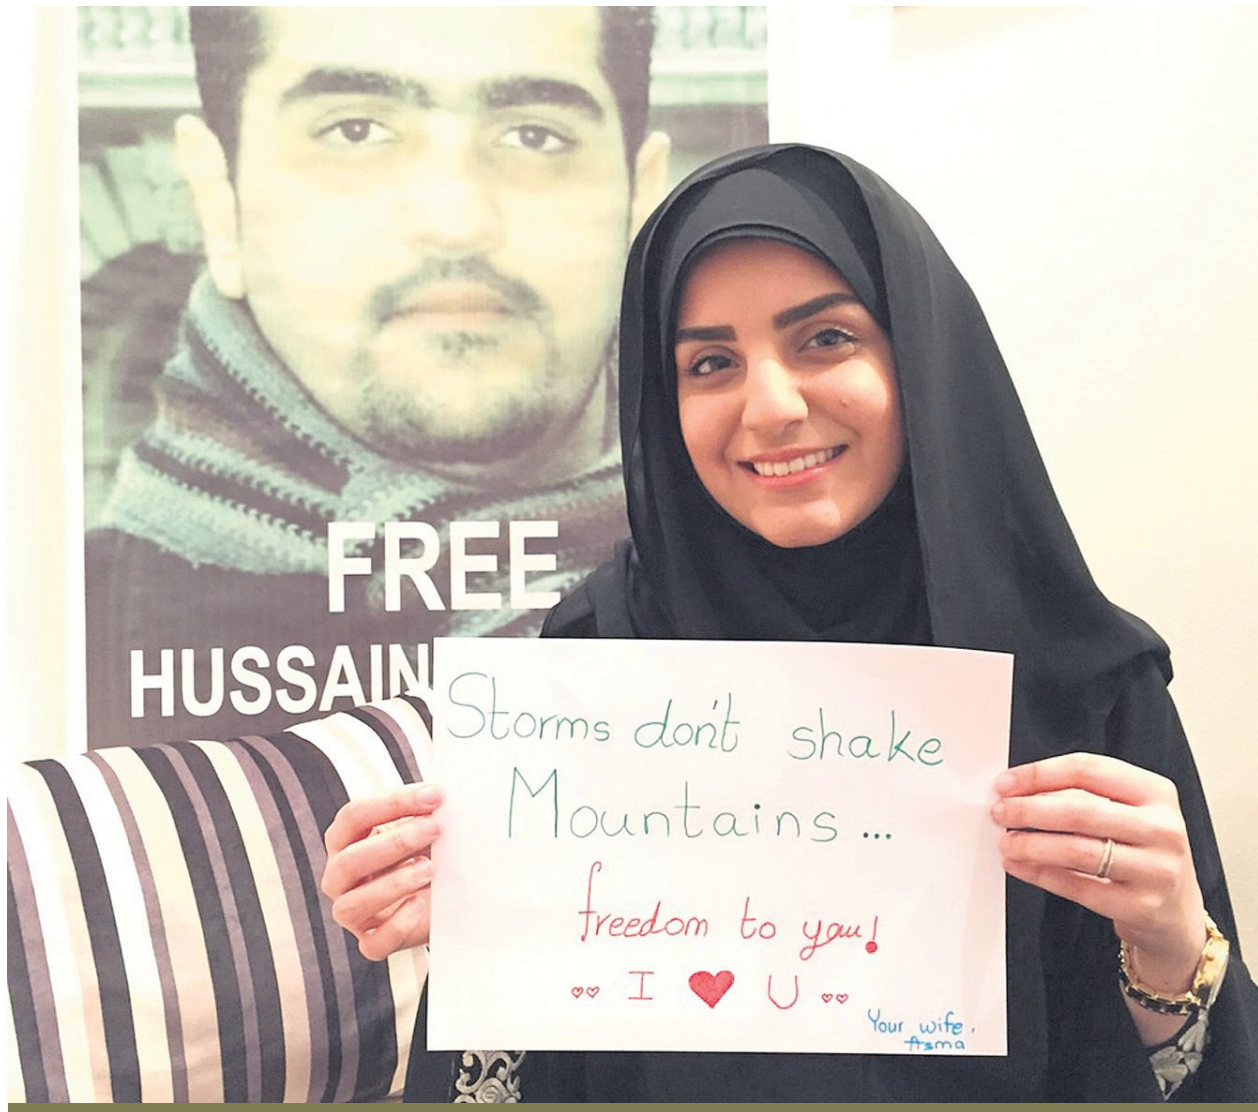 FREE
HUSSAIN
Storms don't shake
Mountains ...
freedom to you!
I ♥ U
Your wife,
Asma